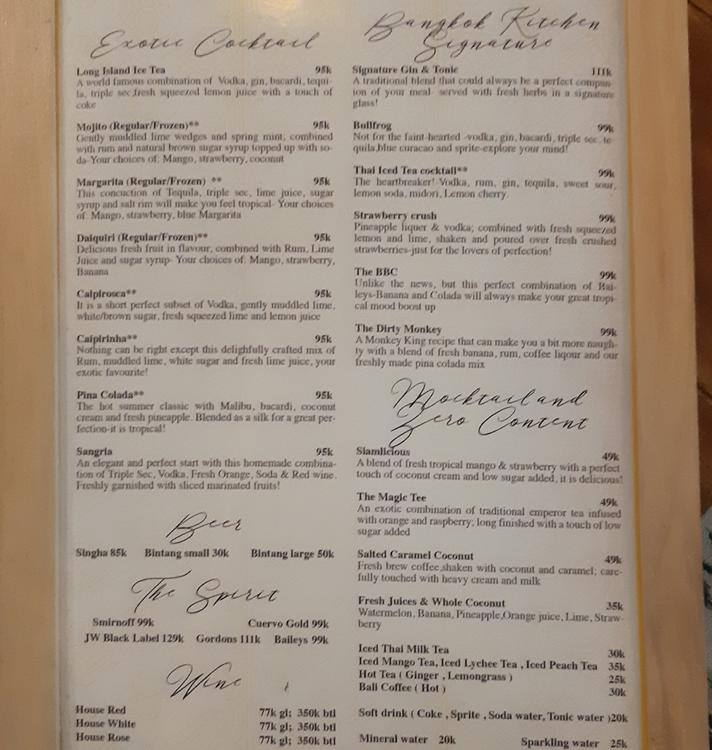 Exotic Cocktail
Long Island Ice Tea 95k
A world famous combination of Vodka, gin, bacardi, tequi-
la, triple sec,fresh squeezed lemon juice with a touch of
coke
Mojito (Regular/Frozen)** 95k
Gently muddled lime wedges and spring mint; combined
with rum and natural brown sugar syrup topped up with so-
da-Your choices of: Mango, strawberry, coconut
Margarita (Regular/Frozen) ** 95k
This concuction of Tequila, triple sec, lime juice, sugar
syrup and salt rim will make you feel tropical- Your choices
of: Mango, strawberry, blue Margarita
Daiquiri (Regular/Frozen)** 95k
Delicious fresh fruit in flavour, combined with Rum, Lime
Juice and sugar syrup- Your choices of: Mango, strawberry,
Banana
Caipirosca** 95k
It is a short perfect subset of Vodka, gently muddled lime,
white/brown sugar, fresh squeezed lime and lemon juice
Caipirinha** 95k
Nothing can be right except this delighfully crafted mix of
Rum, muddled lme, white sugar and fresh lime juice, your
exotic favourite!
Pina Colada** 95k
The hot summer classic with Malibu, bacardi, coconut
cream and fresh pineapple. Blended as a silk for a great per-
fection-it is tropical!
Sangria 95k
An elegant and perfect start with this homemade combina-
tion of Triple Sec, Vodka, Fresh Orange, Soda & Red wine.
Freshly garnished with sliced marinated fruits!
Beer
Singha 85k Bintang small 30k Bintang large 50k
The Spirit
Smirnoff 99k Cuervo Gold 99k
JW Black Label 129k Gordons 111k Baileys 99k
Wine
House Red 77k gl; 350k btl
House White 77k gl; 350k btl
House Rose 77k gl; 350k btl
Bangkok Kitchen
Signature
Signature Gin & Tonic 111k
A traditional blend that could always be a perfect compan-
ion of your meal- served with fresh herbs in a signature
glass!
Bullfrog 99k
Not for the faint-hearted -vodka, gin, bacardi, triple sec, te-
quila,blue curacao and sprite-explore your mind!
Thai Iced Tea cocktail** 99k
The heartbreaker! Vodka, rum, gin, tequila, sweet sour,
lemon soda, midori, Lemon cherry.
Strawberry crush 99k
Pineapple liquer & vodka; combined with fresh squeezed
lemon and lime, shaken and poured over fresh crushed
strawberries-just for the lovers of perfection!
The BBC 99k
Unlike the news, but this perfect combination of Bai-
leys-Banana and Colada will always make your great tropi-
cal mood boost up
The Dirty Monkey 99k
A Monkey King recipe that can make you a bit more naugh-
ty with a blend of fresh banana, rum, coffee liqour and our
freshly made pina colada mix
Mocktail and
Zero Content
Siamlicious 49k
A blend of fresh tropical mango & strawberry with a perfect
touch of coconut cream and low sugar added, it is delicious!
The Magic Tee 49k
An exotic combination of traditional emperor tea infused
with orange and raspberry; long finished with a touch of low
sugar added
Salted Caramel Coconut 49k
Fresh brew coffee,shaken with coconut and caramel; care-
fully touched with heavy cream and milk
Fresh Juices & Whole Coconut 35k
Watermelon, Banana, Pineapple,Orange juice, Lime, Straw-
berry
Iced Thai Milk Tea 30k
Iced Mango Tea, Iced Lychee Tea , Iced Peach Tea 35k
Hot Tea ( Ginger , Lemongrass ) 25k
Bali Coffee ( Hot ) 30k
Soft drink ( Coke , Sprite , Soda water, Tonic water )20k
Mineral water 20k Sparkling water 25k